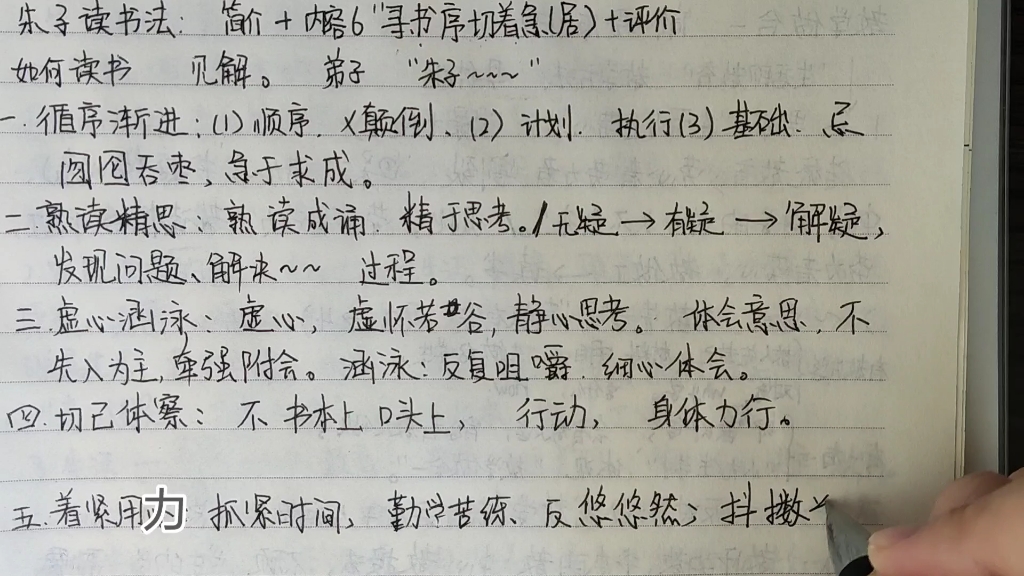 朱子读书法: 简介+内容6“寻书序切着急(居)+评价
如何读书 见解。 弟子 “朱子~~~”
一.循序渐进:(1)顺序.X颠倒、(2)计划.执行(3)基础.忌
囫囵吞枣,急于求成。
二.熟读精思:熟读成诵.精于思考。/无疑→有疑→解疑,
发现问题、解决~~ 过程。
三.虚心涵泳:虚心,虚怀若谷,静心思考。体会意思,不
先入为主,牵强附会。涵泳:反复咀嚼.细心体会。
四.切己体察:不书本上口头上, 行动, 身体力行。
五.着紧用力 抓紧时间,勤学苦练、反悠悠然;抖擞